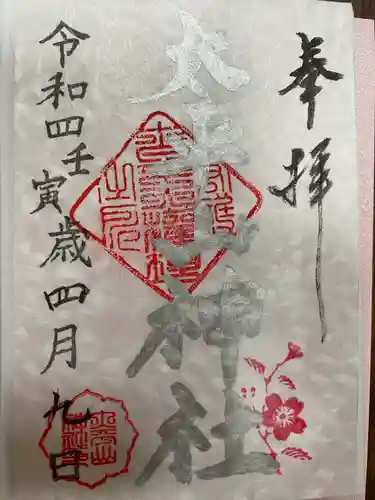 奉拝
太平山神社
令和四壬寅歳四月九日